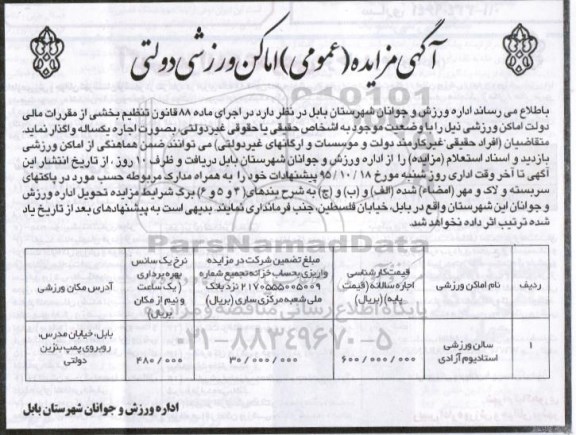 آگهی مزایده (عمومی) اماکن ورزشی دولتی
باطلاع می رساند اداره ورزش و جوانان شهرستان بابل در نظر دارد در اجرای ماده ۸۸ قانون تنظیم بخشی از مقررات مالی
دولت اماکن ورزشی ذیل را با وضعیت موجود به اشخاص حقیقی یا حقوقی غیردولتی، بصورت اجاره یکساله واگذار نماید.
متقاضیان (افراد حقیقی غیرکارمند دولت و مؤسسات و ارگانهای غیردولتی) می توانند ضمن هماهنگی از اماکن ورزشی
بازدید و اسناد استعلام (مزایده) را از اداره ورزش و جوانان شهرستان بابل دریافت و ظرف ۱۰ روز، از تاریخ انتشار این
آگهی تا آخر وقت اداری روز شنبه مورخ ۹۵/۱۰/۱۸ پیشنهادات خود را به همراه مدارک مربوطه حسب مورد در پاکتهای
سربسته و لاک و مهر (امضاء) شده (الف) و (ب) و (ج) به شرح بندهای (۴ و ۵ و ۶) برگ شرایط مزایده تحویل اداره ورزش
و جوانان این شهرستان واقع در بابل، خیابان فلسطین، جنب فرمانداری نمایند. بدیهی است به پیشنهادهای بعد از تاریخ یاد
شده ترتیب اثر داده نخواهد شد.
ParsNamadData
پایگاه اطلاع رسانی مناقصه و مزایده
۰۲۱-۸۸۳۴۹۶۷۰-۵
ردیف
نام اماکن ورزشی
قیمت کارشناسی
اجاره سالانه (قیمت
پایه) (بریال)
مبلغ تضمین شرکت در مزایده
واریزی بحساب خزانه تجمیع شماره
۲۱۷۰۵۵۵۰۰۵۰۰۹ نزد بانک
ملی شعبه مرکزی ساری (بریال)
نرخ یک سانس
بهره برداری
(یک ساعت
و نیم از مکان
بریال)
آدرس مکان ورزشی
۱
سالن ورزشی
استادیوم آزادی
۶۰۰/۰۰۰/۰۰۰
۳۰/۰۰۰/۰۰۰
۴۸۰/۰۰۰
بابل، خیابان مدرس،
روبروی پمپ بنزین
دولتی
اداره ورزش و جوانان شهرستان بابل